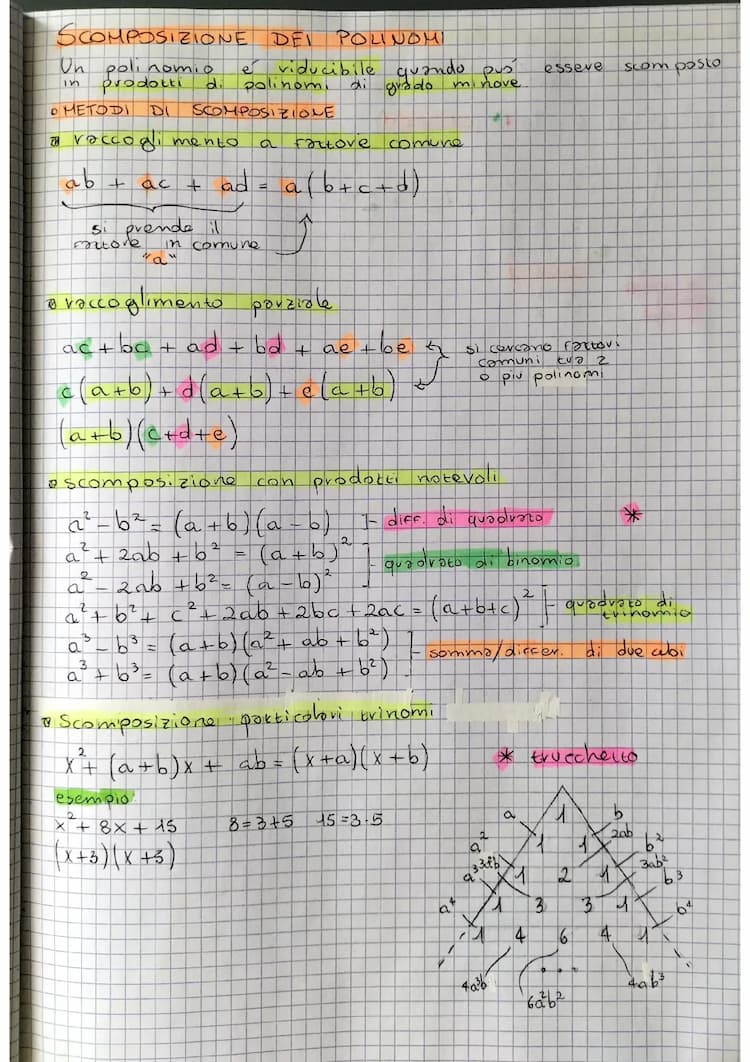 SCOMPOSIZIONE DEI POLINOMI
Un polinomio é riducibile quando può essere scomposto
in prodotti di polinomi di grado minore
METODI DI SCOMPOSIZIONE
raccoglimento a fattore comune
ab + ac + ad = a(b+c+d)
si prende il
fattore in comune
"a"
raccoglimento parziale
ac + bc + ad + bd + ae + be
si cercano fattori
comuni tra 2
o più polinomi
c(a+b) + d(a+b) + e(a+b)
(a+b)(c+d+e)
scomposizione con prodotti notevoli
a² - b² = (a+b)(a-b) diff. di quadrato *
a² + 2ab + b² = (a+b)²
quadrato di binomio
a² - 2ab + b² = (a-b)²
a² + b² + c² + 2ab + 2bc + 2ac = (a+b+c)² quadrato di
trinomio
a³ - b³ = (a+b)(a² + ab + b²)
somma/differ. di due cubi
a³ + b³ = (a+b)(a² - ab + b²)
Scomposizione particolari trinomi
x² + (a+b)x + ab = (x+a)(x+b)
* trucchetto
esempio:
x² + 8x + 15 8=3+5 15=3·5
(x+3)(x+5)
a 1 b
a² 1 1 2ab b²
a³ 1 2 1 3ab² b³
a⁴ 1 3 3 1 b⁴
1 4 6 4 1
4a³b 6a²b² 4ab³